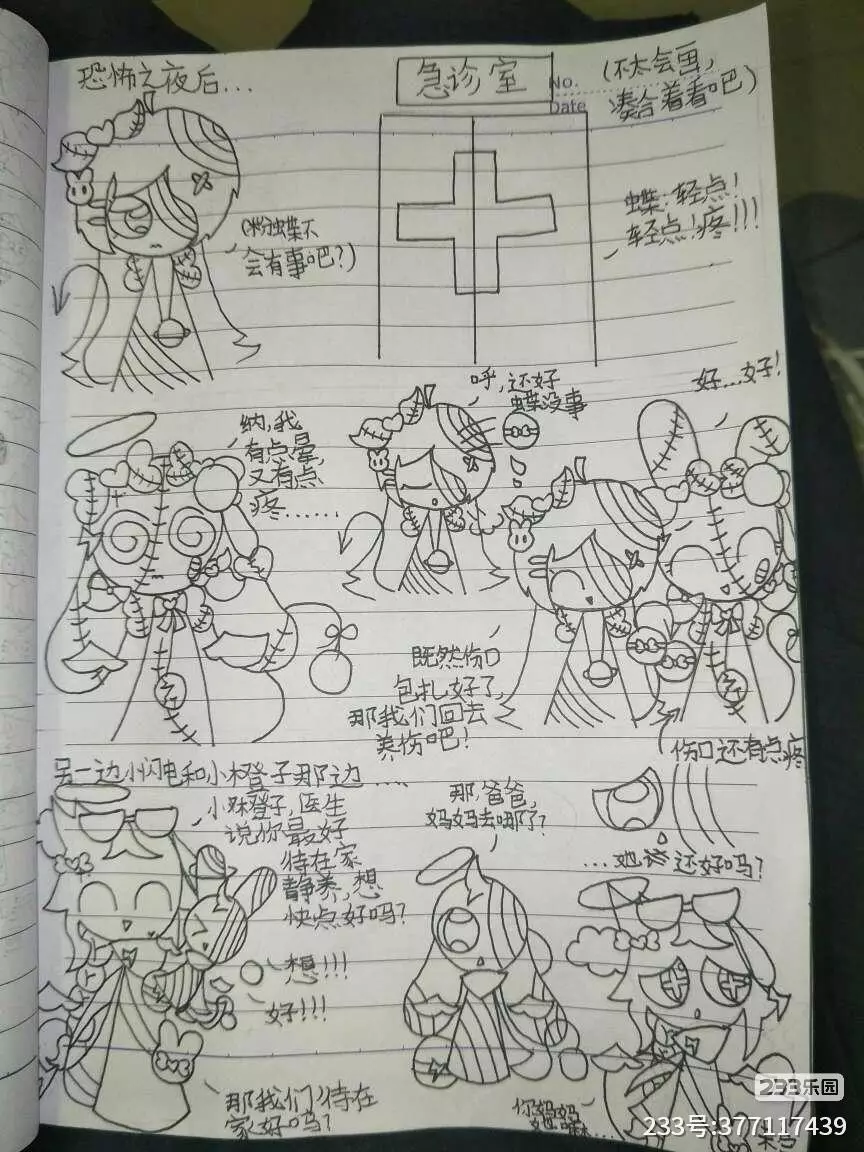 恐怖之夜后...
急诊室
No.
Date
(不太会画,
凑合着看吧)
(粉蝶不
会有事吧?)
蝶:轻点!
轻点!疼!!!
纳,我
有点晕,
又有点
疼......
呼,还好
蝶没事
好...好!
既然伤口
包扎好了,
那我们回去
养伤吧!
伤口还有点疼
另一边小闪电和小橙子那边....
小橙子,医生
说你最好
待在家
静养,想
快点好吗?
想!!!
好!!!
那我们待在
家好吗?
那,爸爸,
妈妈去哪了?
...她该还好吗?
你妈妈
她嘛...
233乐园
233号:377117439